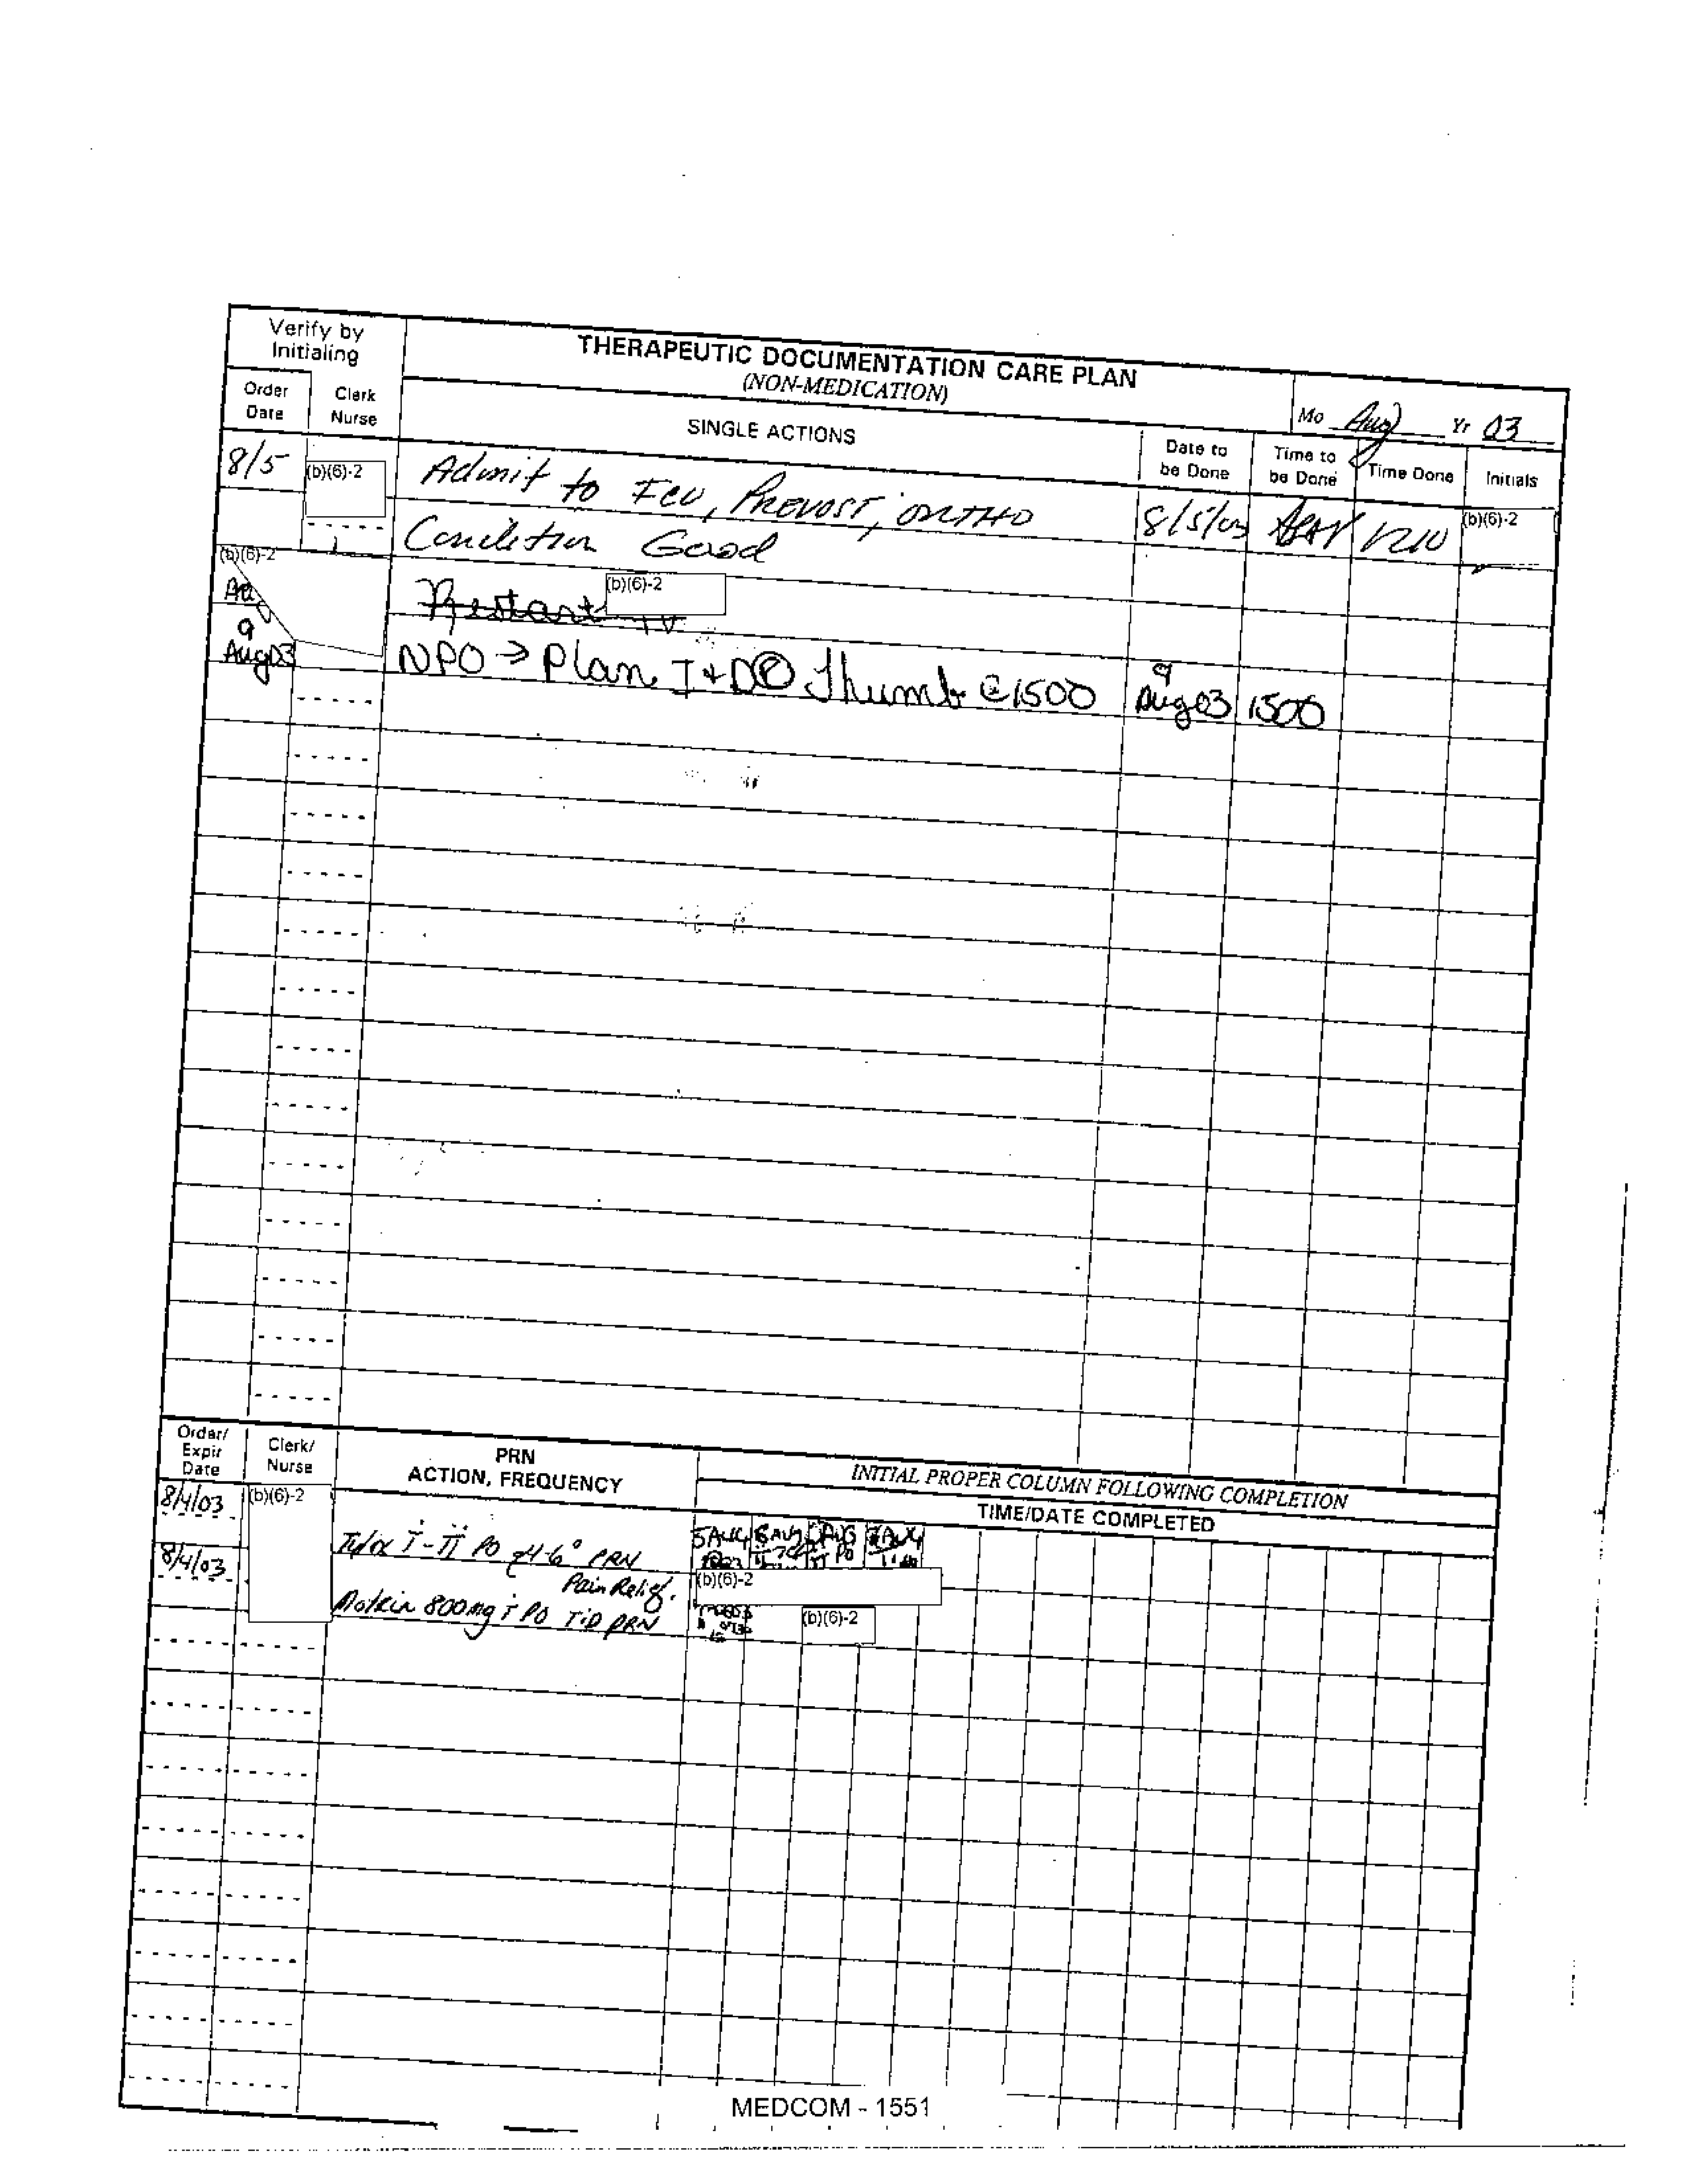 Verify by
Initialing
THERAPEUTIC DOCUMENTATION CARE PLAN
(NON-MEDICATION)
Mo Aug Yr 03
Order
Date
Clerk
Nurse
SINGLE ACTIONS
Date to
be Done
Time to
be Done
Time Done
Initials
8/5 (b)(6)-2 Admit to ICU, PREVOST, ORTHO 8/5/03 1210 (b)(6)-2
Condition Good
(b)(6)-2
Restart IV (b)(6)-2
9
Aug03 NPO → Plan I+D Ⓡ Thumb @1500 9 Aug03 1500
Order/
Expir
Date
Clerk/
Nurse
PRN
ACTION, FREQUENCY
INITIAL PROPER COLUMN FOLLOWING COMPLETION
TIME/DATE COMPLETED
8/4/03 (b)(6)-2 Tylox i-ii PO q4-6° PRN 5AUG
Pain Relief. (b)(6)-2
8/4/03 Motrin 800mg i PO TID PRN (b)(6)-2
MEDCOM - 1551